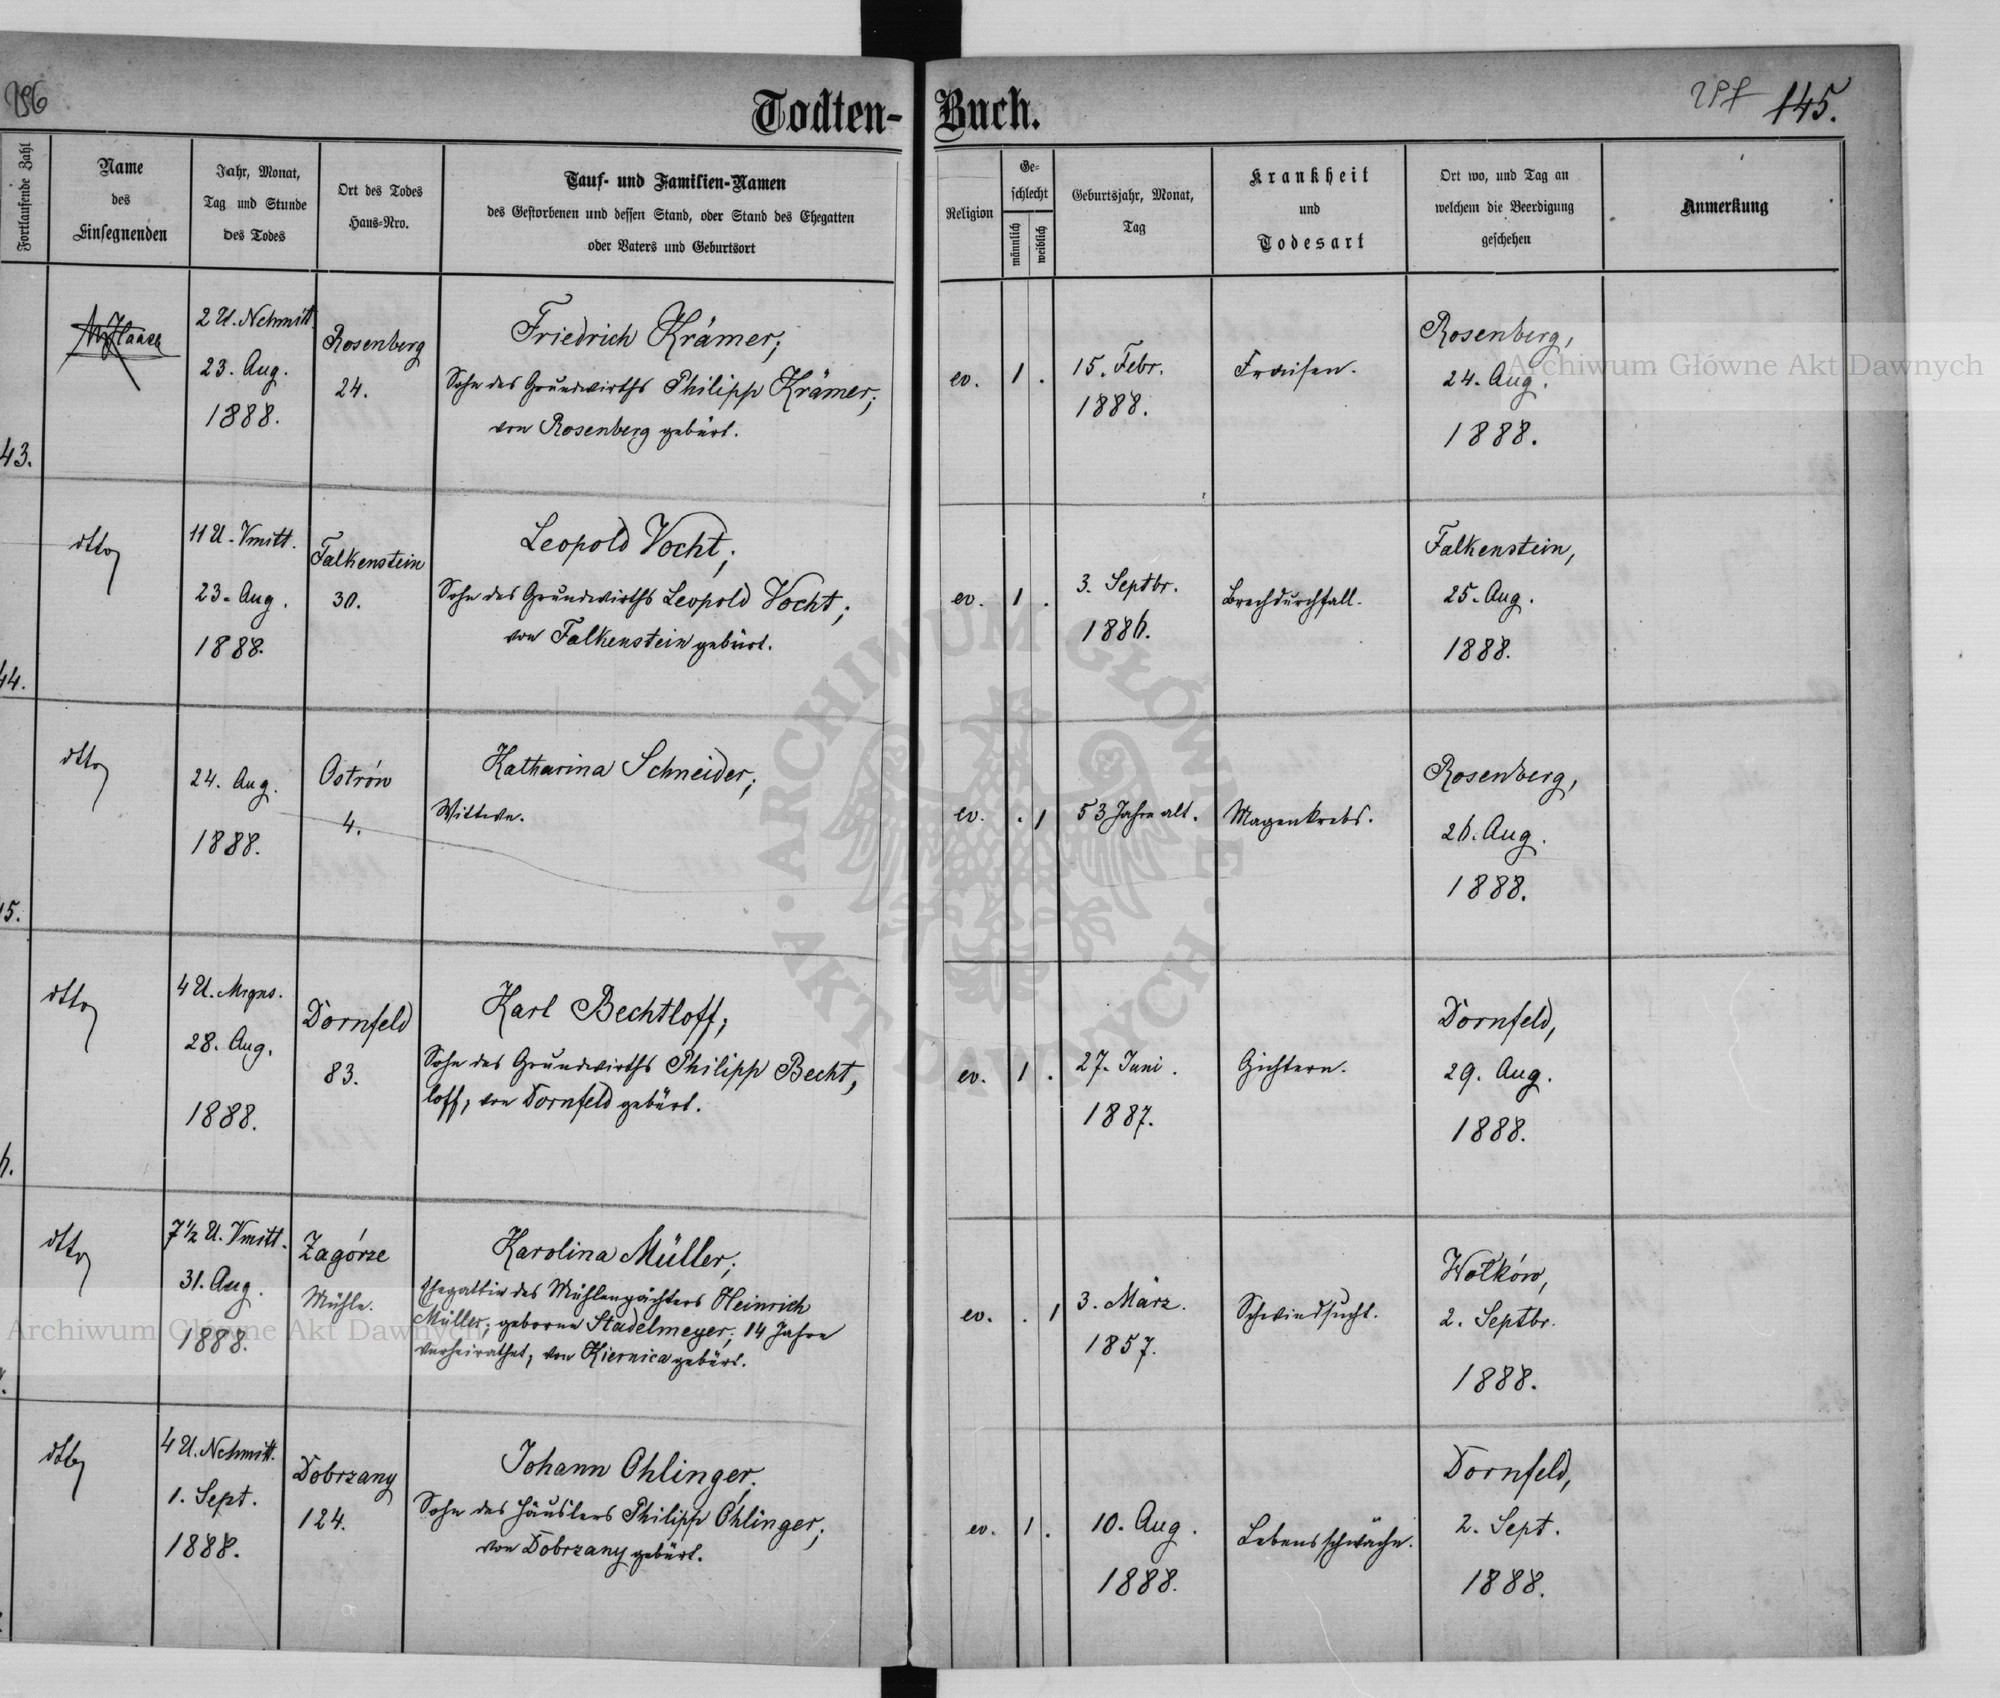 Todten-Buch.
145.
Fortlaufende Zahl
Name
des
Einsegnenden
Jahr, Monat,
Tag und Stunde
des Todes
Ort des Todes
Haus-Nro.
Tauf- und Familien-Namen
des Gestorbenen und dessen Stand, oder Stand des Ehegatten
oder Vaters und Geburtsort
Religion
Ge-
schlecht
männlich
weiblich
Geburtsjahr, Monat,
Tag
Krankheit
und
Todesart
Ort wo, und Tag an
welchem die Beerdigung
geschehen
Anmerkung
43.
2 U. Nchmitt.
23. Aug.
1888.
Rosenberg
24.
Friedrich Krämer;
Sohn des Grundwirths Philipp Krämer;
von Rosenberg gebürt.
ev.
1 .
15. Febr.
1888.
Fraisen.
Rosenberg,
24. Aug.
1888.
44.
dtto
11 U. Vmitt.
23. Aug.
1888.
Falkenstein
30.
Leopold Vocht;
Sohn des Grundwirths Leopold Vocht;
von Falkenstein gebürt.
ev.
1 .
3. Septbr.
1886.
Brechdurchfall.
Falkenstein,
25. Aug.
1888.
5.
dtto
24. Aug.
1888.
Ostrów
4.
Katharina Schneider;
Wittwe.
ev.
. 1
53 Jahre alt.
Magenkrebs.
Rosenberg,
26. Aug.
1888.
6.
dtto
4 U. Mrgns.
28. Aug.
1888.
Dornfeld
83.
Karl Bechtloff;
Sohn des Grundwirths Philipp Becht,
loff; von Dornfeld gebürt.
ev.
1 .
27. Juni.
1887.
Gichtern.
Dornfeld,
29. Aug.
1888.
dtto
7 1/2 U. Vmitt.
31. Aug.
1888.
Zagórze
Mühle.
Karolina Müller;
Ehegattin des Mühlenpächters Heinrich
Müller; geborne Stadelmeyer; 14 Jahre
verheirathet, von Kiernica gebürt.
ev.
. 1
3. März.
1857.
Schwindsucht.
Wołków,
2. Septbr.
1888.
dtto
4 U. Nchmitt.
1. Sept.
1888.
Dobrzany
124.
Johann Ohlinger;
Sohn des Häuslers Philipp Ohlinger;
von Dobrzany gebürt.
ev.
1 .
10. Aug.
1888.
Lebensschwäche.
Dornfeld,
2. Sept.
1888.
Archiwum Główne Akt Dawnych
ARCHIWUM GŁÓWNE · AKT DAWNYCH ·
Archiwum Główne Akt Dawnych